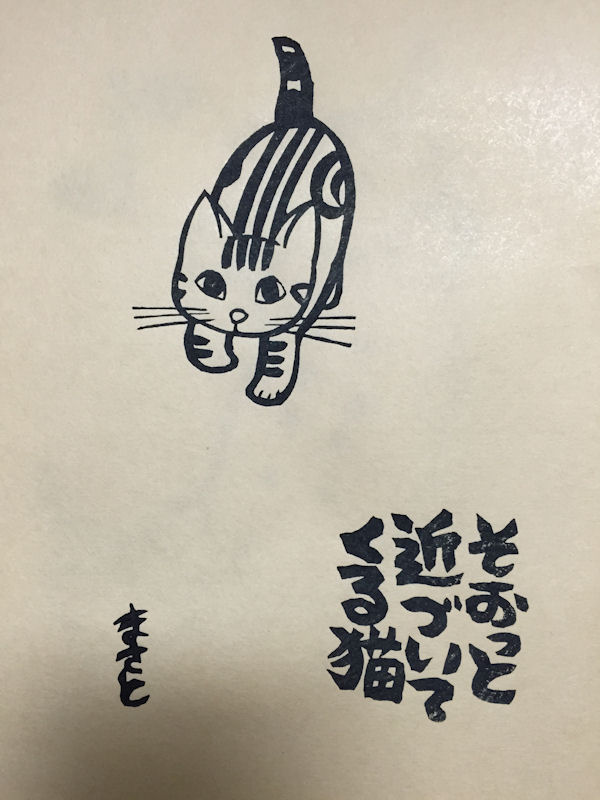 そおっと
近づいて
くる猫
まさと